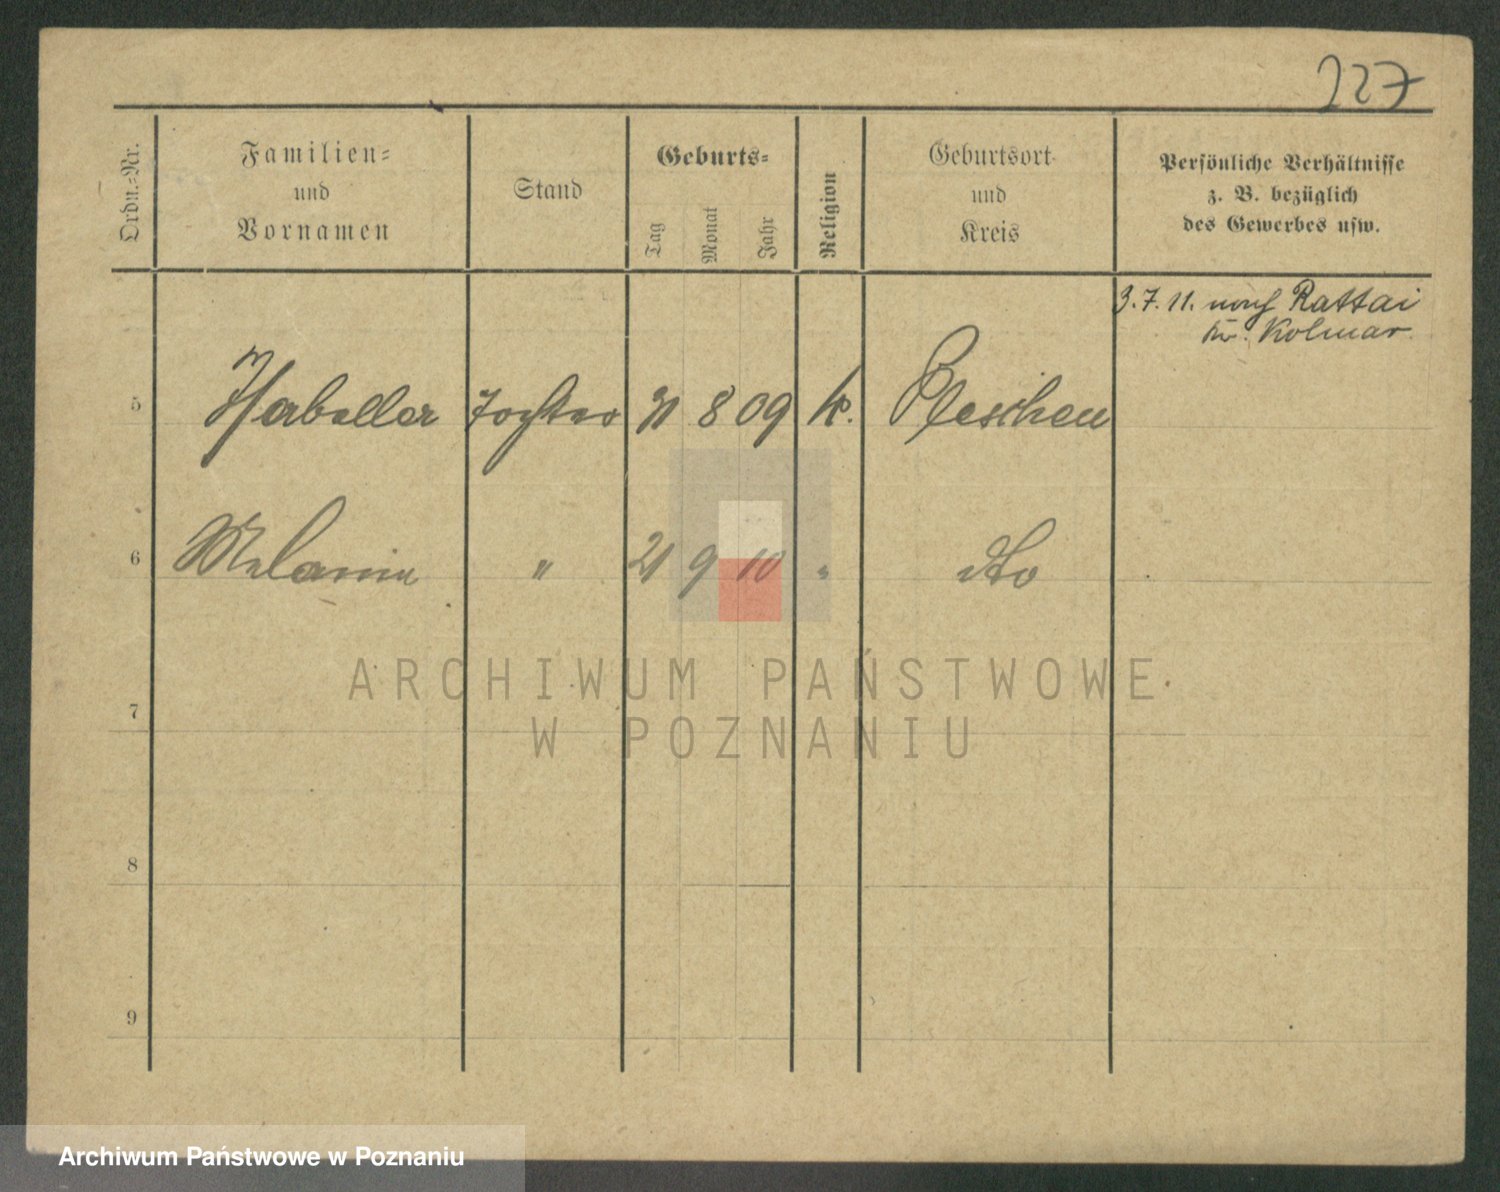 227
Ordn.-Nr.
Familien-
und
Vornamen
Stand
Geburts-
Tag
Monat
Jahr
Religion
Geburtsort
und
Kreis
Persönliche Verhältnisse
z. B. bezüglich
des Gewerbes usw.
3.7.11. nach Rattai
Kr. Kolmar.
5 Isabella Tochter 31 8 09 k. Pleschen
6 Melanie " 21 9 10 " dto
7
8
9
ARCHIWUM PAŃSTWOWE
W POZNANIU
Archiwum Państwowe w Poznaniu